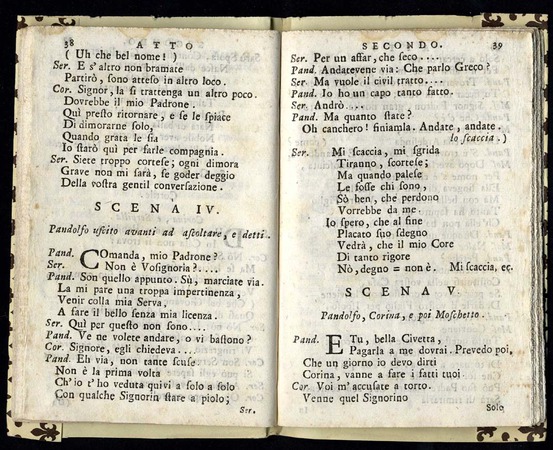 38 ATTO
( Uh che bel nome! )
Ser. E s'altro non bramate
Partirò, sono atteso in altro loco.
Cor. Signor, la si trattenga un altro poco.
Dovrebbe il mio Padrone
Quì presto ritornare, e se le spiace
Di dimorarne solo,
Quando grata le sia
Io starò quì per farle compagnia.
Ser. Siete troppo cortese; ogni dimora
Grave non mi sarà, se goder deggio
Della vostra gentil conversazione.
SCENA IV.
Pandolfo uscito avanti ad ascoltare, e detti.
Pand. COmanda, mio Padrone?
Ser. Non è Vosignoria?....
Pand. Son quello appunto. Sù, marciate via.
La mi pare una troppa impertinenza,
Venir colla mia Serva,
A fare il bello senza mia licenza.
Ser. Quì per questo non sono....
Pand. Ve ne volete andare, o vi bastono?
Cor. Signore, egli chiedeva....
Pand. Eh via, non tante scuse.
Non è la prima volta
Ch'io t'ho veduta quivi a solo a solo
Con qualche Signorin stare a piolo;
Ser.
SECONDO. 39
Ser. Per un affar, che seco....
Pand. Andatevene via: Che parlo Greco?
Ser. Ma vuole il civil tratto....
Pand. Io ho un capo tanto fatto.
Ser. Andrò....
Pand. Ma quanto state?
Oh canchero! finiamla. Andate, andate.
lo scaccia.)
Ser. Mi scaccia, mi sgrida
Tiranno, scortese;
Ma quando palese
Le fosse chi sono,
Sò ben, che perdono
Vorrebbe da me.
Io spero, che al fine
Placato suo sdegno
Vedrà, che il mio Core
Di tanto rigore
Nò, degno = non è. Mi scaccia, ec.
SCENA V.
Pandolfo, Corina, e poi Moschetto.
Pand. E Tu, bella Civetta,
Pagarla a me dovrai. Prevedo poi,
Che un giorno io devo dirti
Corina, vanne a fare i fatti tuoi.
Cor. Voi m'accusate a torto.
Venne quel Signorino
Solo